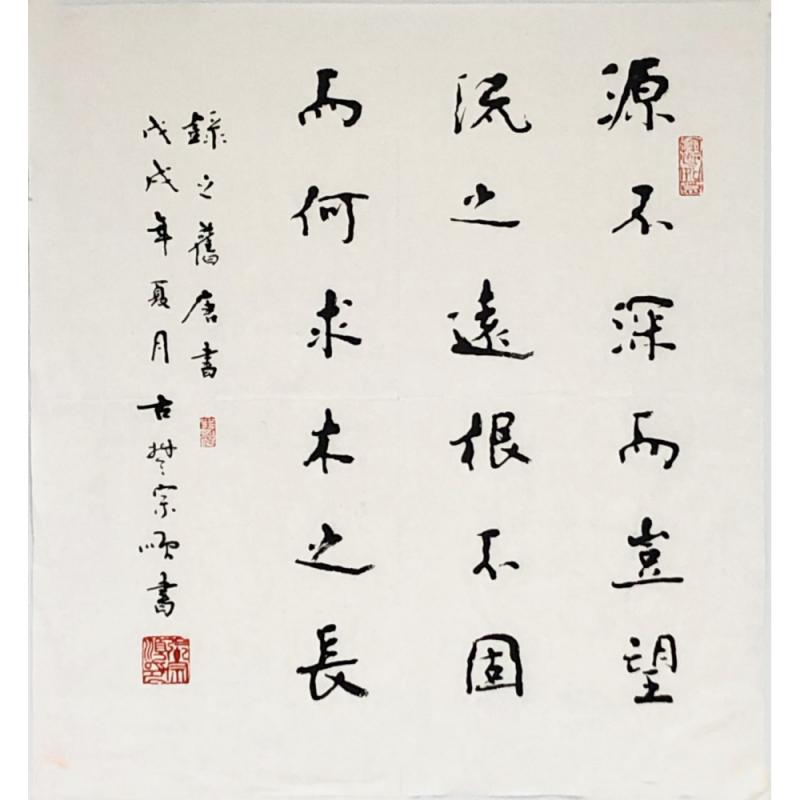 源不深而豈望
流之遠根不固
而何求木之長
錄之舊唐書
戊戌年夏月古楚宗順書